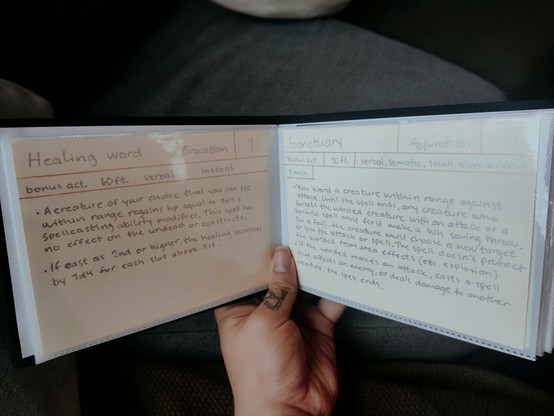 Healing word
Evocation
1
bonus act.
60ft.
verbal
Instant
• A creature of your choice that you can see
within range regains hp equal to 1d4 +
spellcasting ability modifier. This spell has
no effect on the undead or constructs.
• If cast as 2nd or higher, the healing increases
by 1d4 for each slot above 1st.
Sanctuary
Abjuration
bonus act.
30ft.
verbal, somatic, small silver
1 min.
• You ward a creature within range against
attack. Until the spell ends, any creature who
targets the warded creature with an attack or a
harmful spell must first make a wis saving throw.
On a fail, the creature must choose a new target
or lose the attack or spell. The spell doesn't protect
the warded from area effects (etc. explosion)
• If the warded makes an attack, casts a spell
that affects an enemy, or deals damage to another
creature, the spell ends.